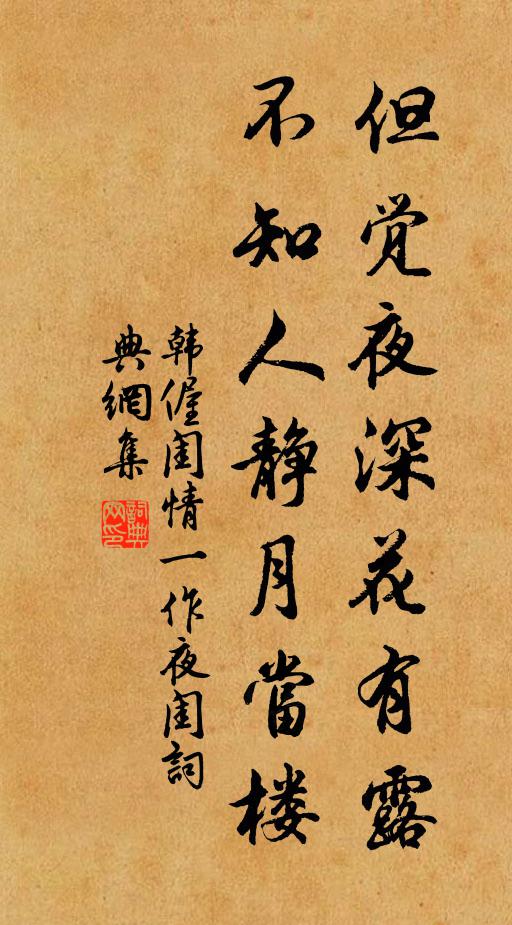 但觉夜深花有露
不知人静月當楼
韩偓闺情一作夜闺詞
典網集
詞典网印